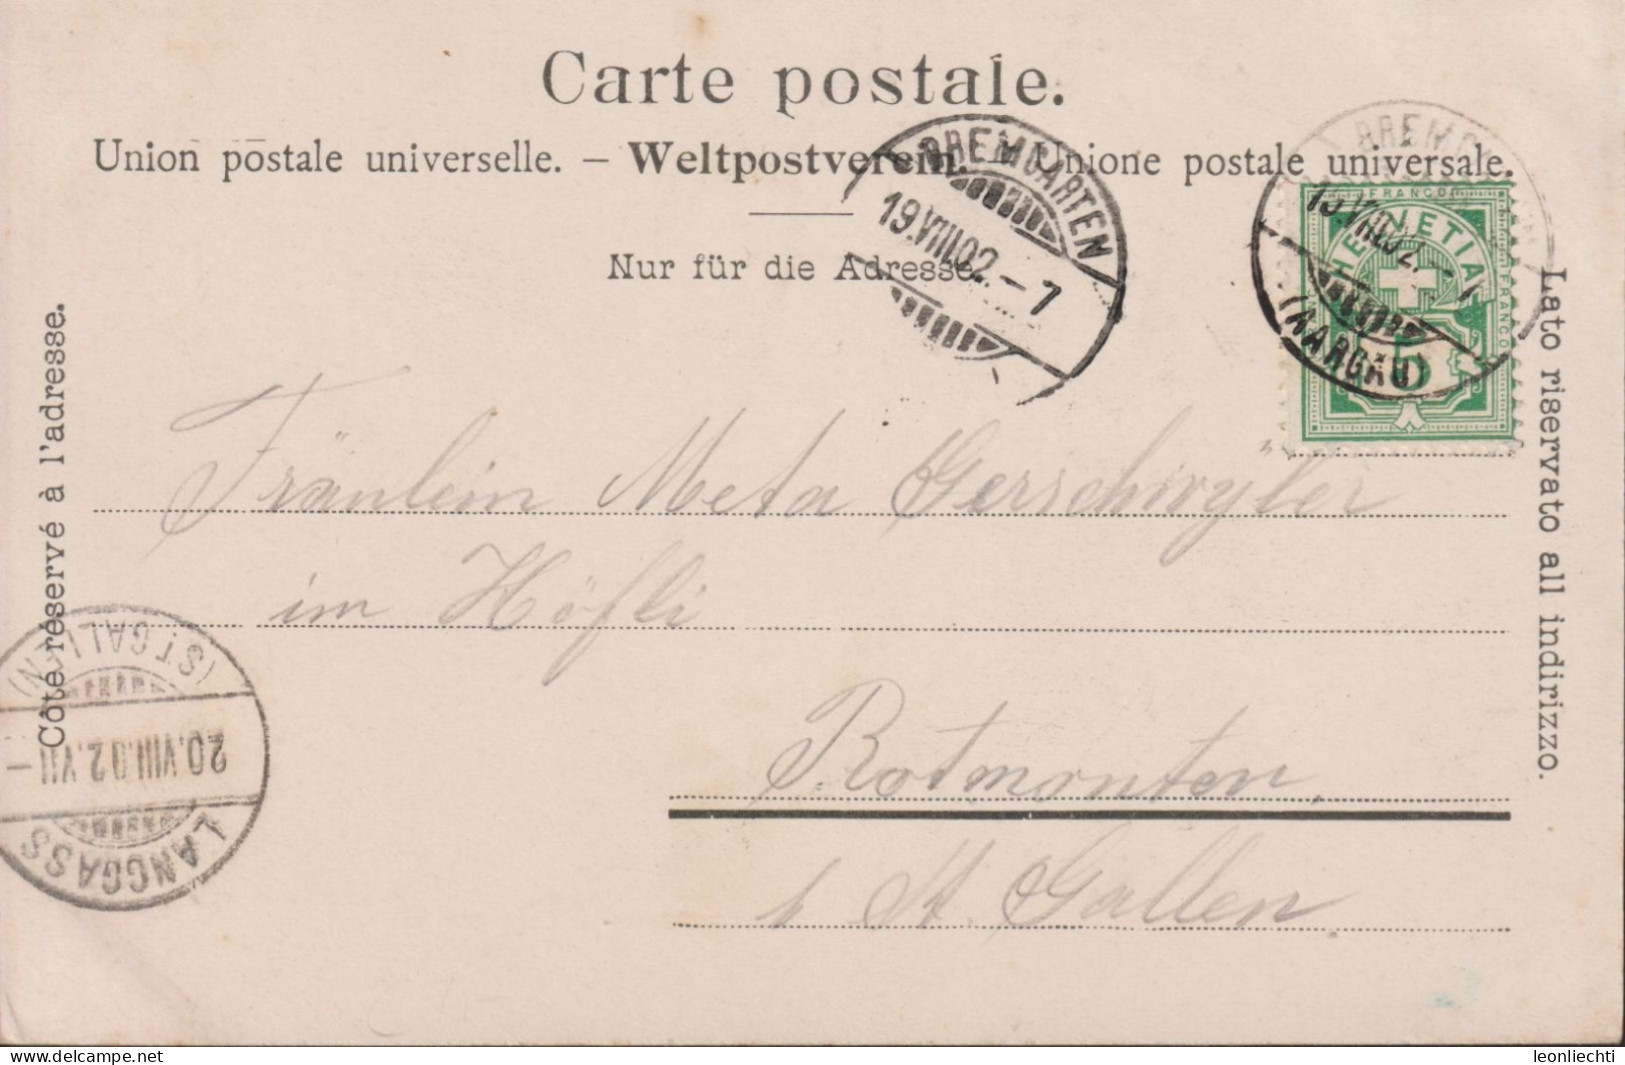 Carte postale.
Union postale universelle. – Weltpostverein. – Unione postale universale.
Nur für die Adresse.
Côté réservé à l'adresse.
Lato riservato all indirizzo.
BREMGARTEN
19.VIII.02.–7
BREMG
19.VIII.02.–7
(AARGAU)
FRANCO
HELVETIA
FRANCO
5
Fräulein Meta Gerschwyler
im Höfli
Rotmonten,
b St. Gallen.
(ST. GALLEN)
20.VIII.02.VII–
LANGGASS
delcampe.net
leonliechti